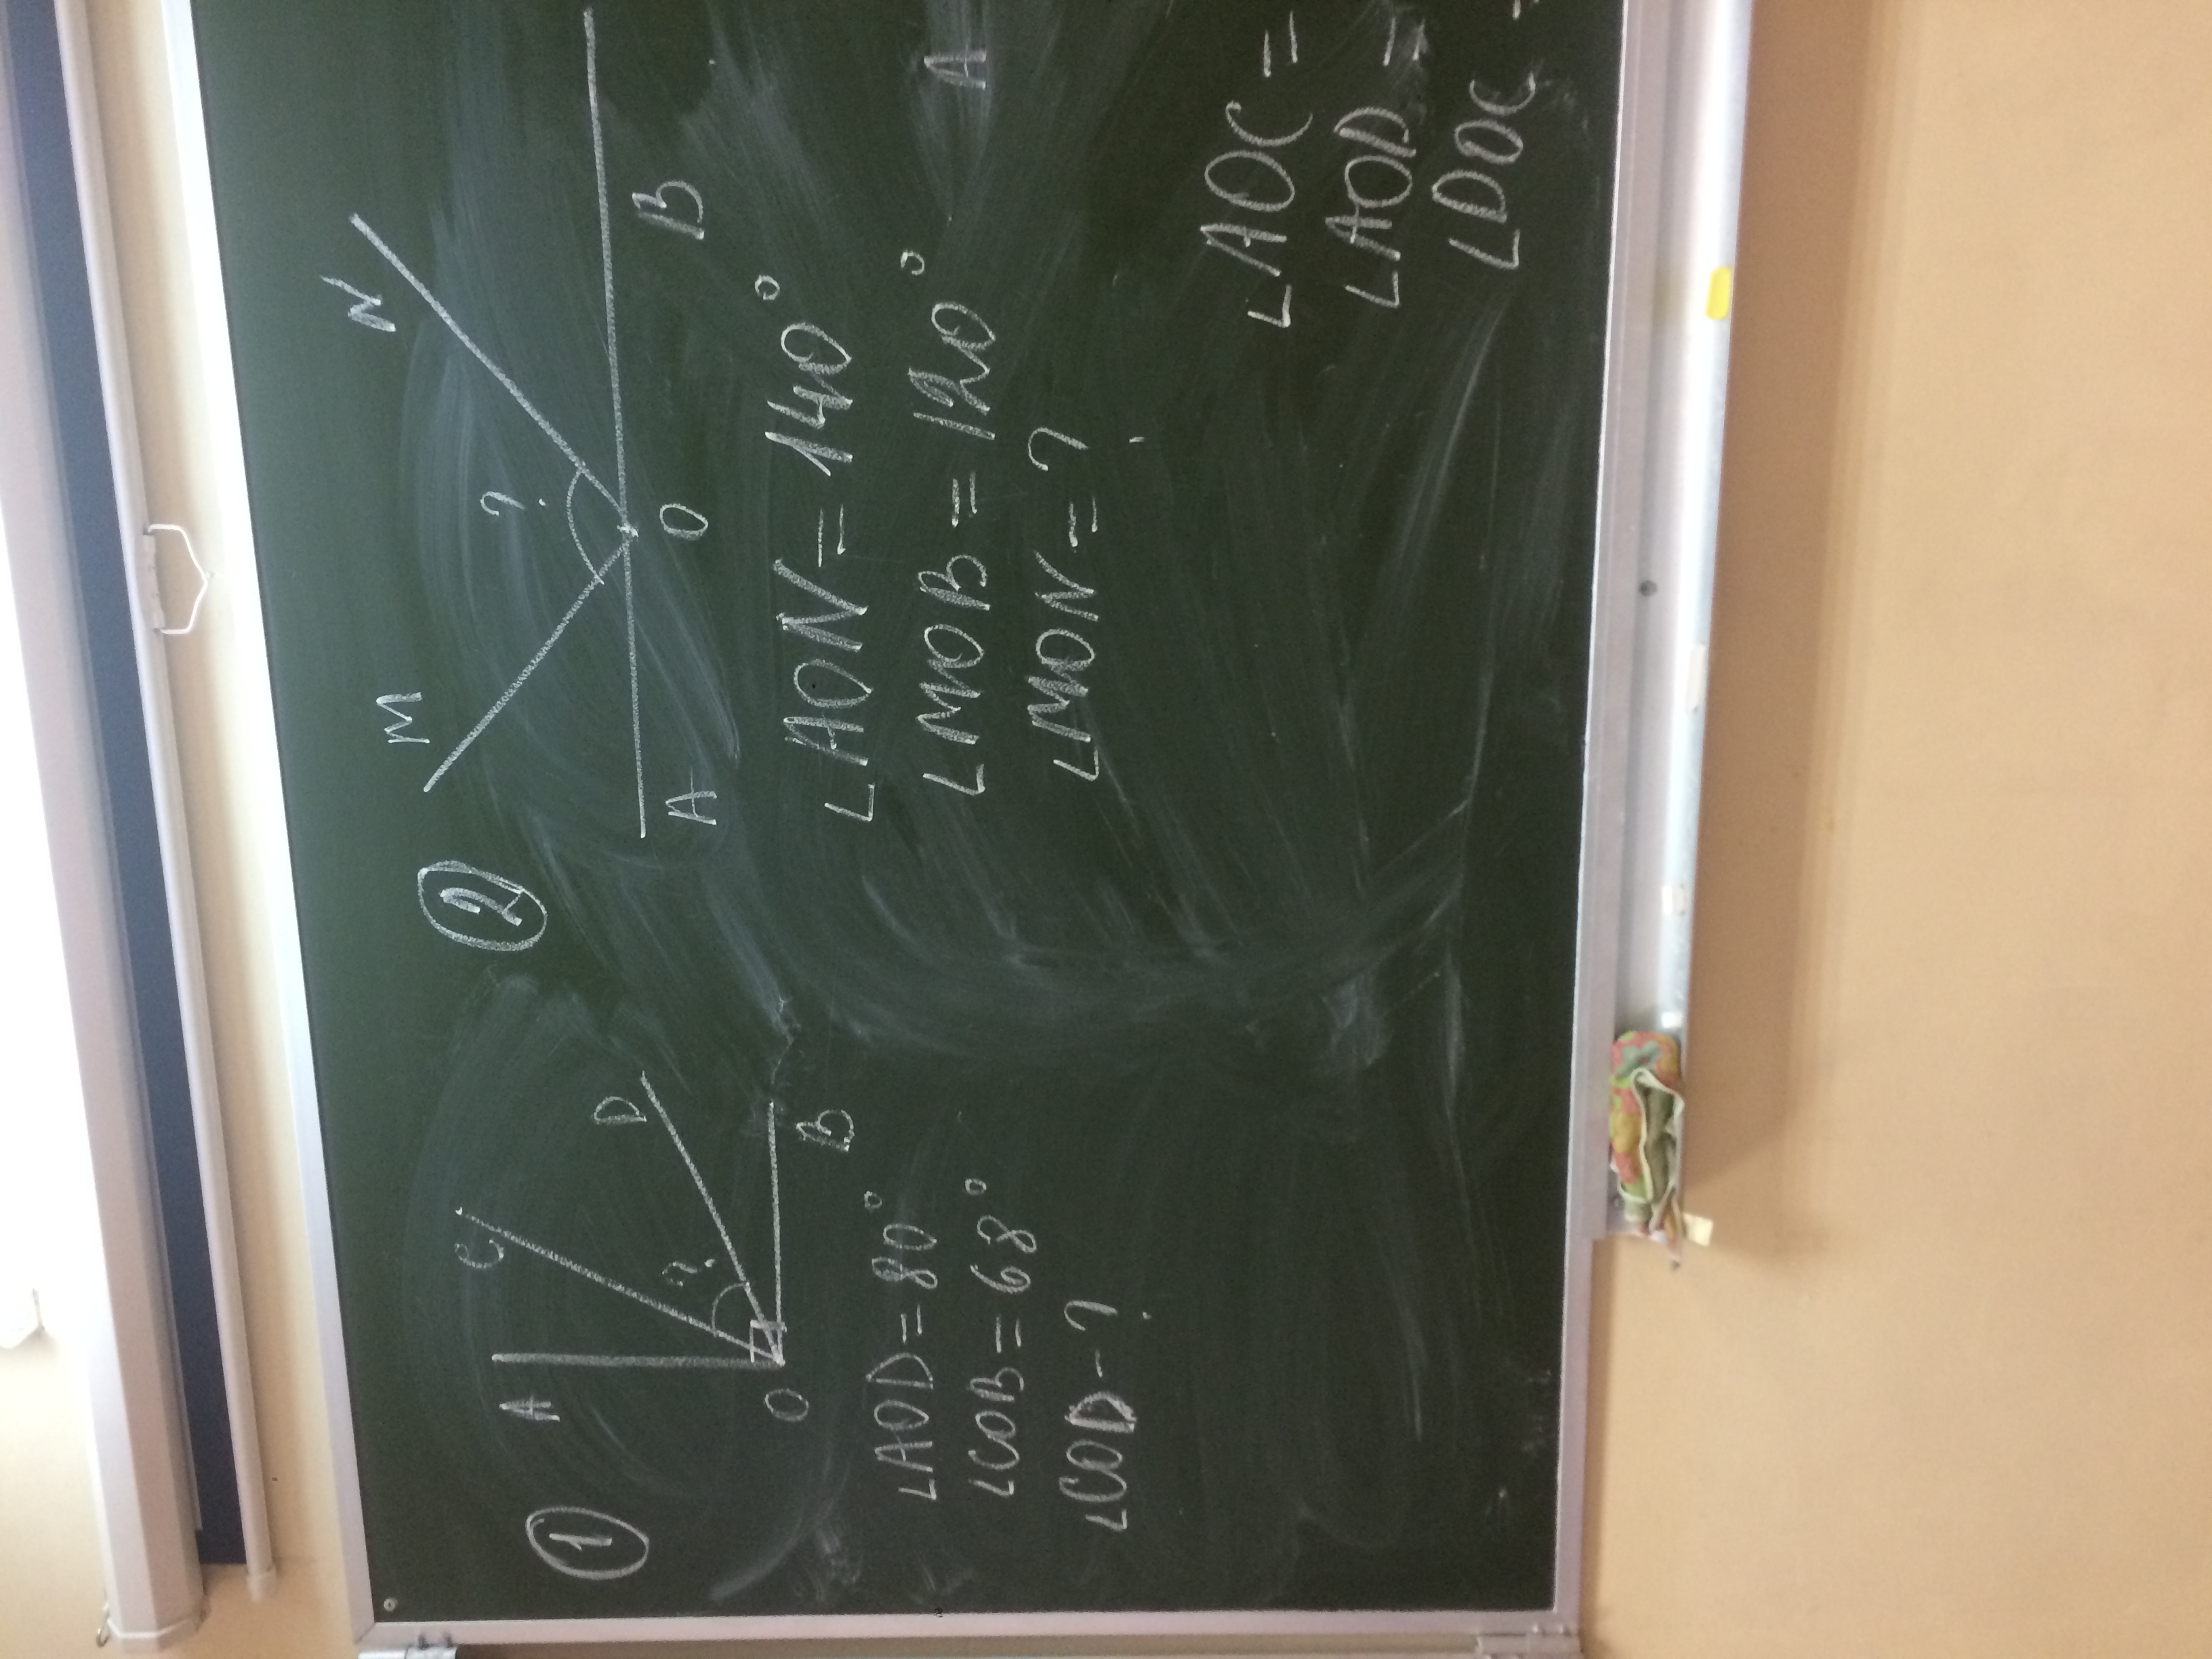 ①
A
C
D
?
O
B
∠AOD=80°
∠COB=68°
∠COD-?
②
M
N
?
A
O
B
∠AON=140°
∠MOB=120°
∠MON=?
A
∠AOC=
∠AOD=
∠DOC